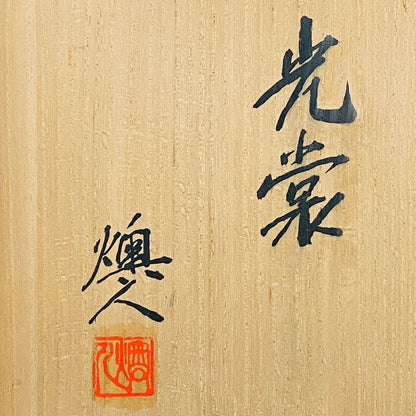 光裳
燠人